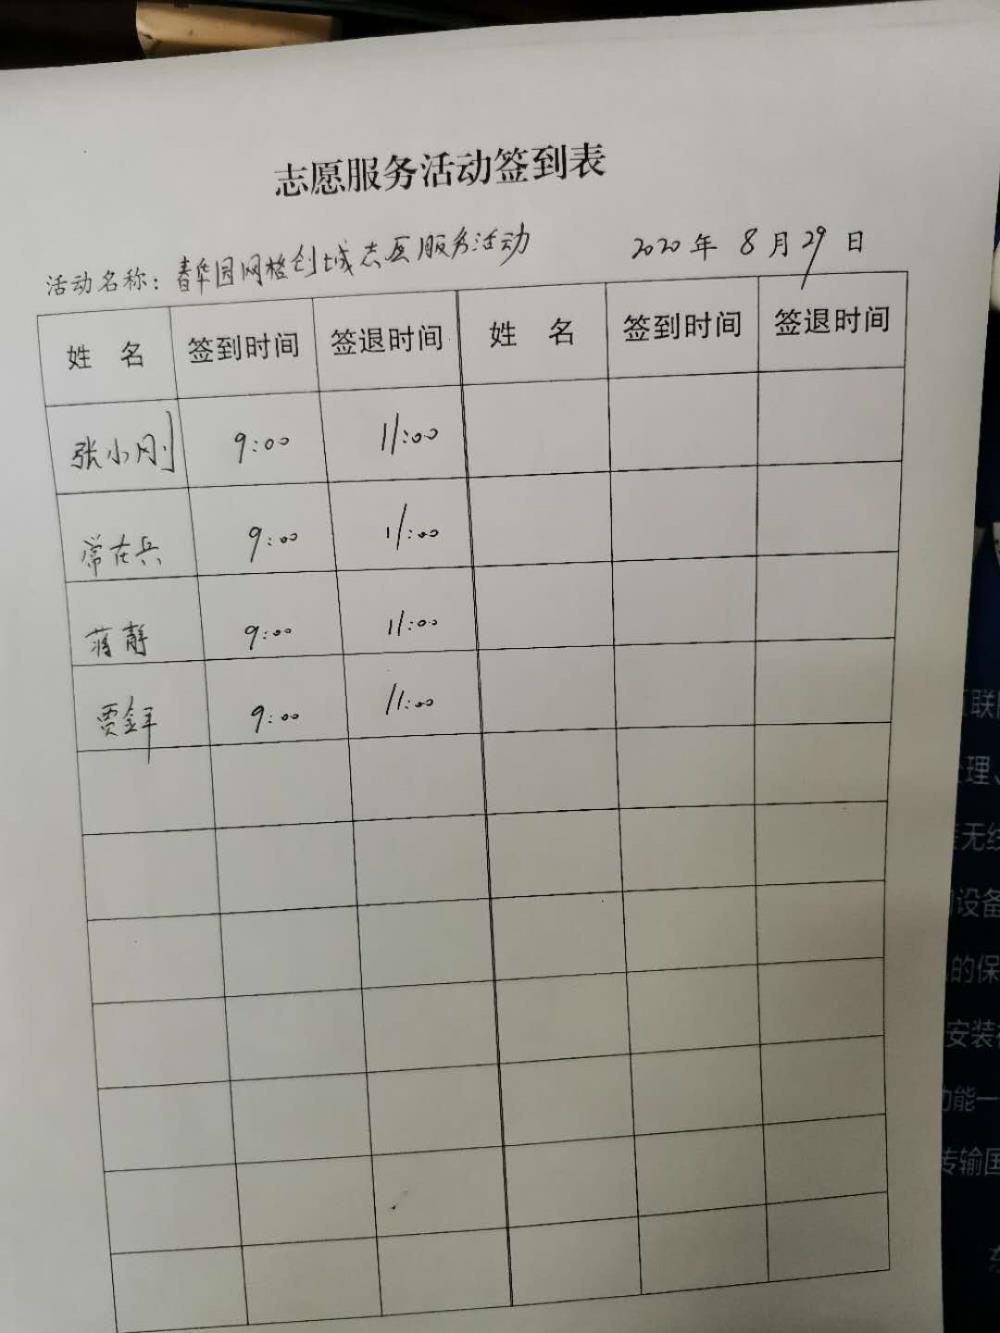 志愿服务活动签到表
活动名称：春华园网格创城志愿服务活动 2020年8月29日
姓 名 签到时间 签退时间 姓 名 签到时间 签退时间
张小刚 9:00 11:00
常在兵 9:00 11:00
蒋静 9:00 11:00
贾金平 9:00 11:00
联
理、
无线
设备
的保
安装
功能一
传输国